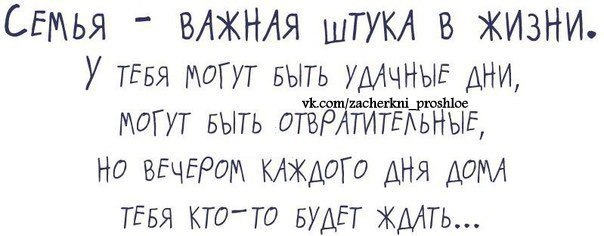 Семья - важная штука в жизни.
У тебя могут быть удачные дни,
vk.com/zacherkni_proshloe
могут быть отвратительные,
но вечером каждого дня дома
тебя кто-то будет ждать...